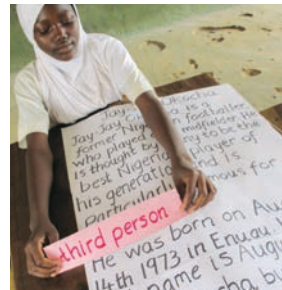 Jay Jay Okocha
Jay Jay is a
former footballer
who played midfielder. He
is thought by many to be the
best Nigerian player of
his generation and is
particularly famous for
third person
He was born on Au
14th 1973 in Enuau.
name is Augu
cha bu